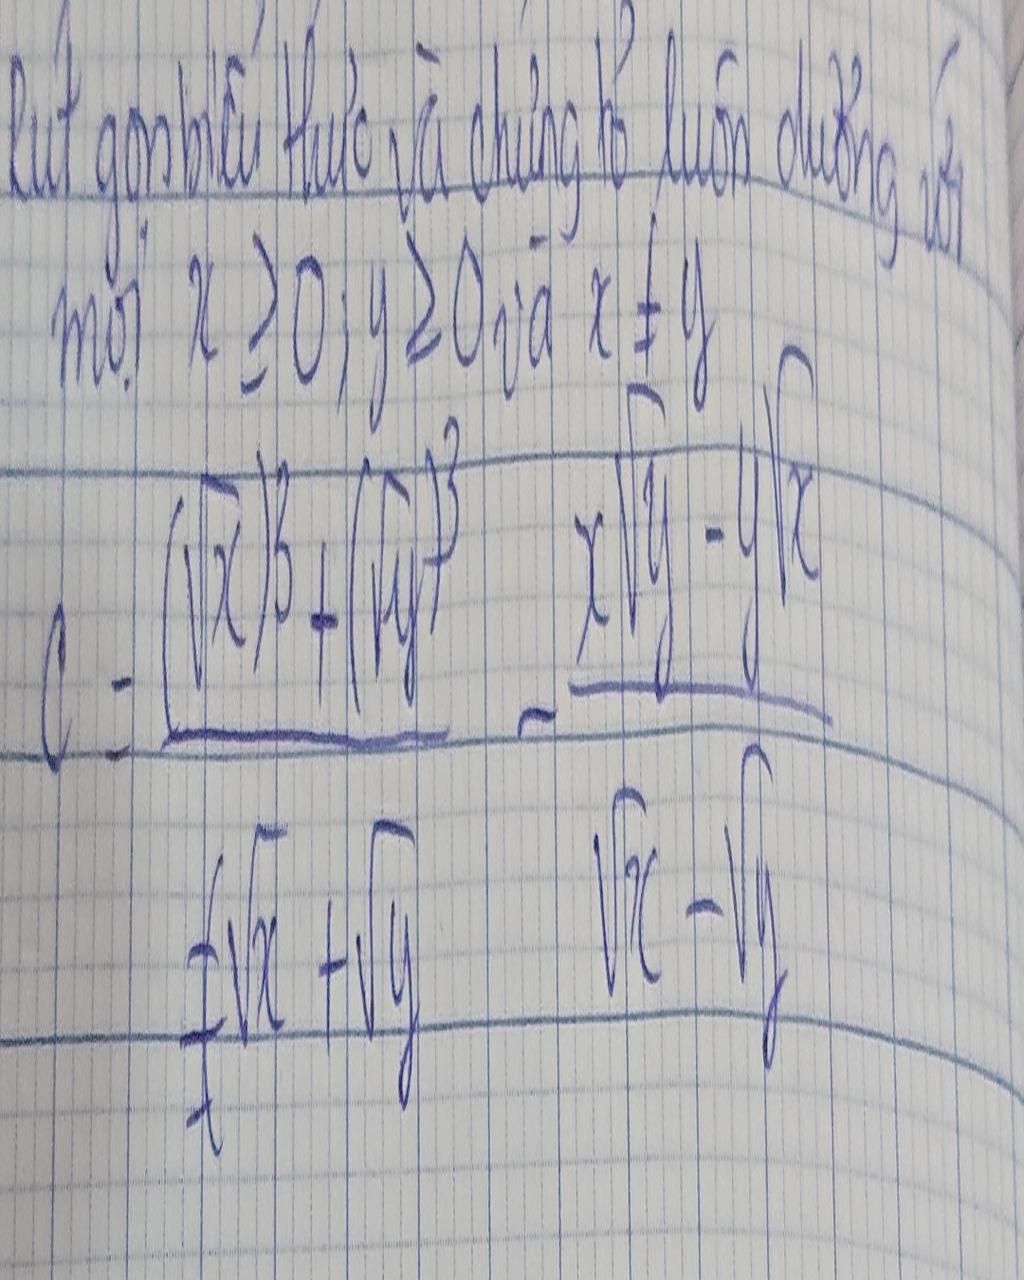 Rút gọn biểu thức và chứng tỏ luôn dương với
mọi x ≥ 0; y ≥ 0 và x ≠ y
C = ((√x)³ + (√y)³)/(√x + √y) - (x√y - y√x)/(√x - √y)